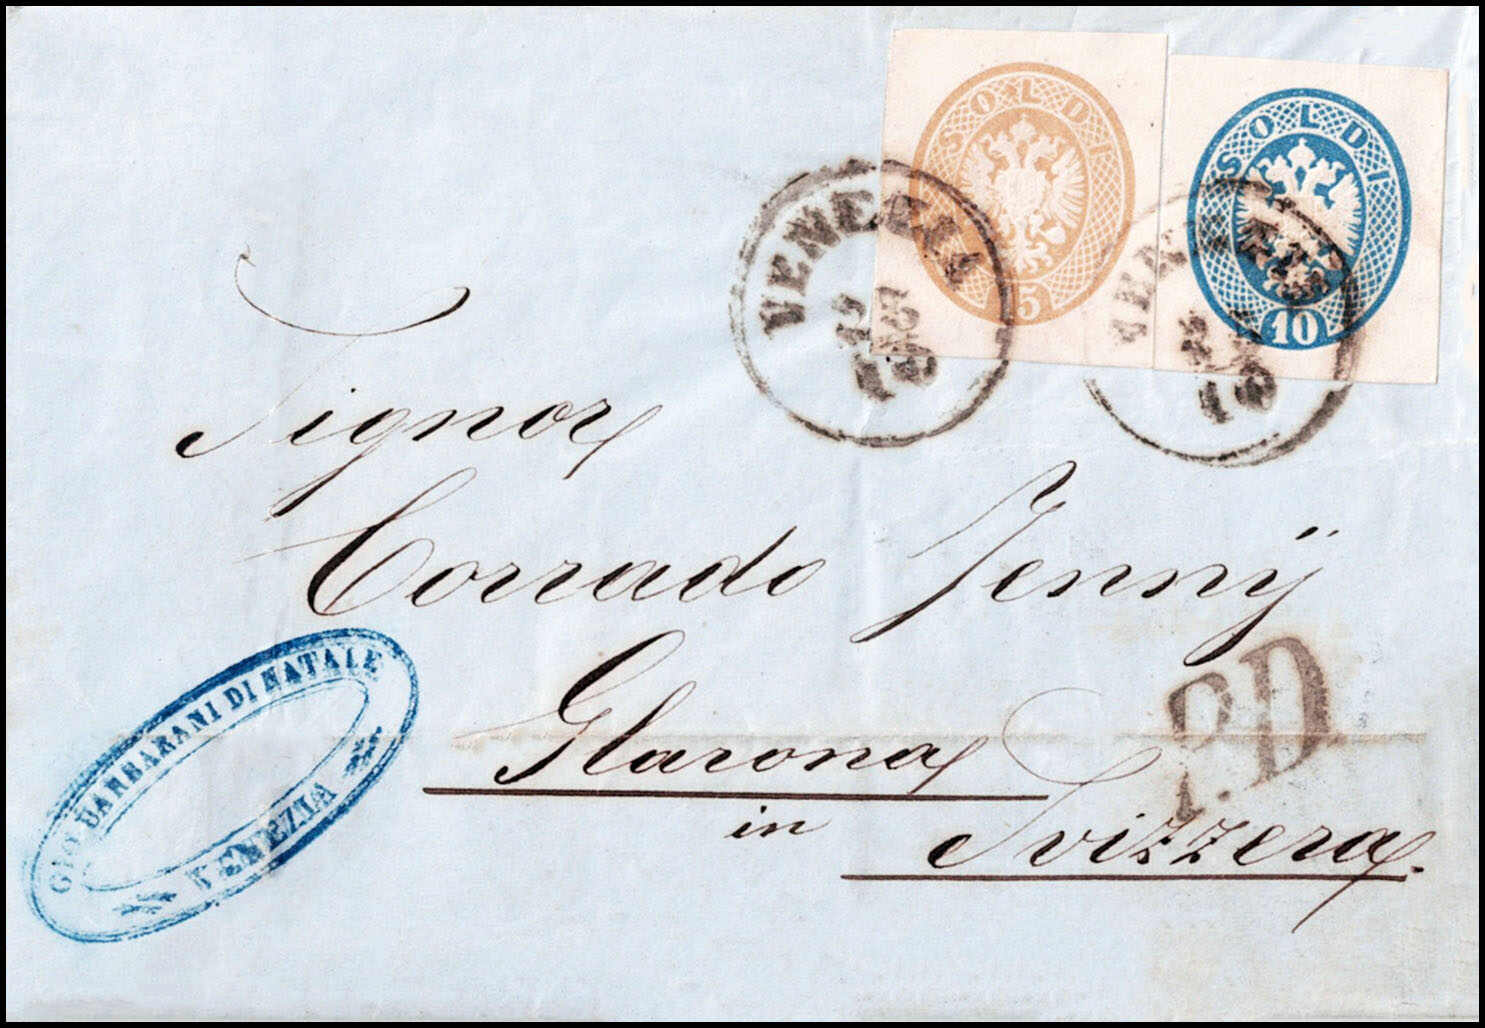 SOLDI
15
SOLDI
10
VENEZIA
Signor
Corrado Jennÿ
Glarona
in
Svizzera.
P.D.
GIO. BARBARANI DI NATALE
VENEZIA